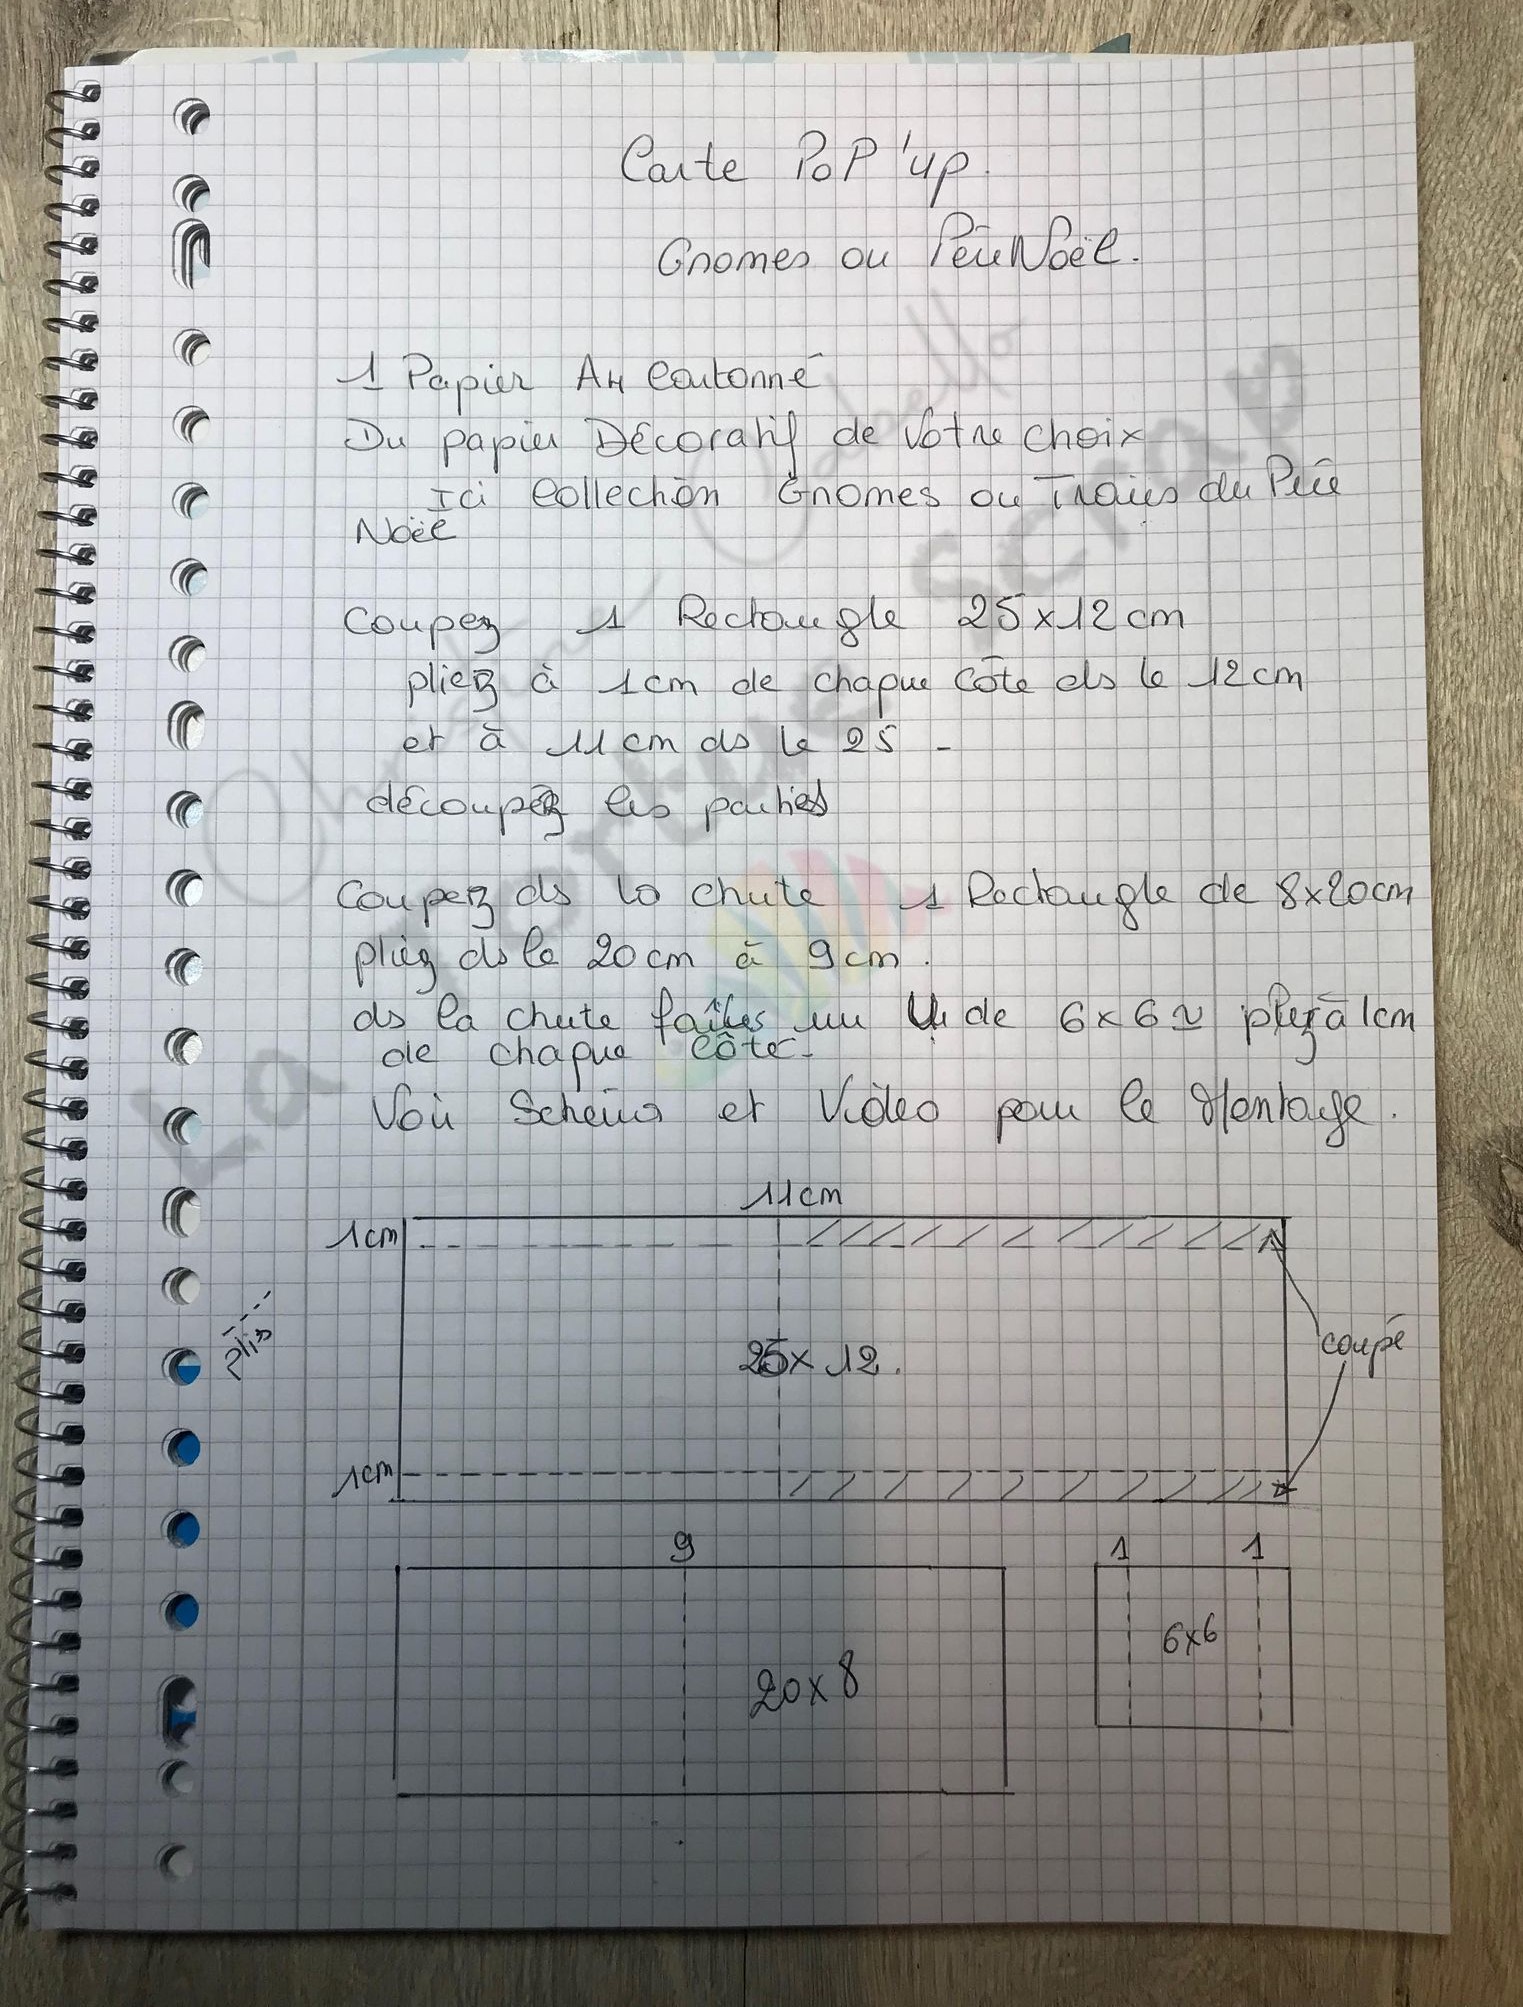 Carte PoP'up.
Gnomes ou Père Noël.
1 Papier A4 Cartonné
Du papier Décoratif de Votre choix
Ici Collection Gnomes ou du Père
Noël
Coupez 1 Rectangle 25x12cm
pliez à 1cm de chaque côté ds le 12cm
et à 11cm ds le 25 -
découpez les parties
Coupez ds la chute 1 Rectangle de 8x20cm
pliez ds le 20cm à 9cm.
ds la chute faites un de 6x6 pliez à 1cm
de chaque côté.
Voir Schéma et Vidéo pour le Montage.
Christine
La Tortue Scrap
11cm
1cm
plis
25x12.
coupé
1cm
9
1 1
6x6
20x8